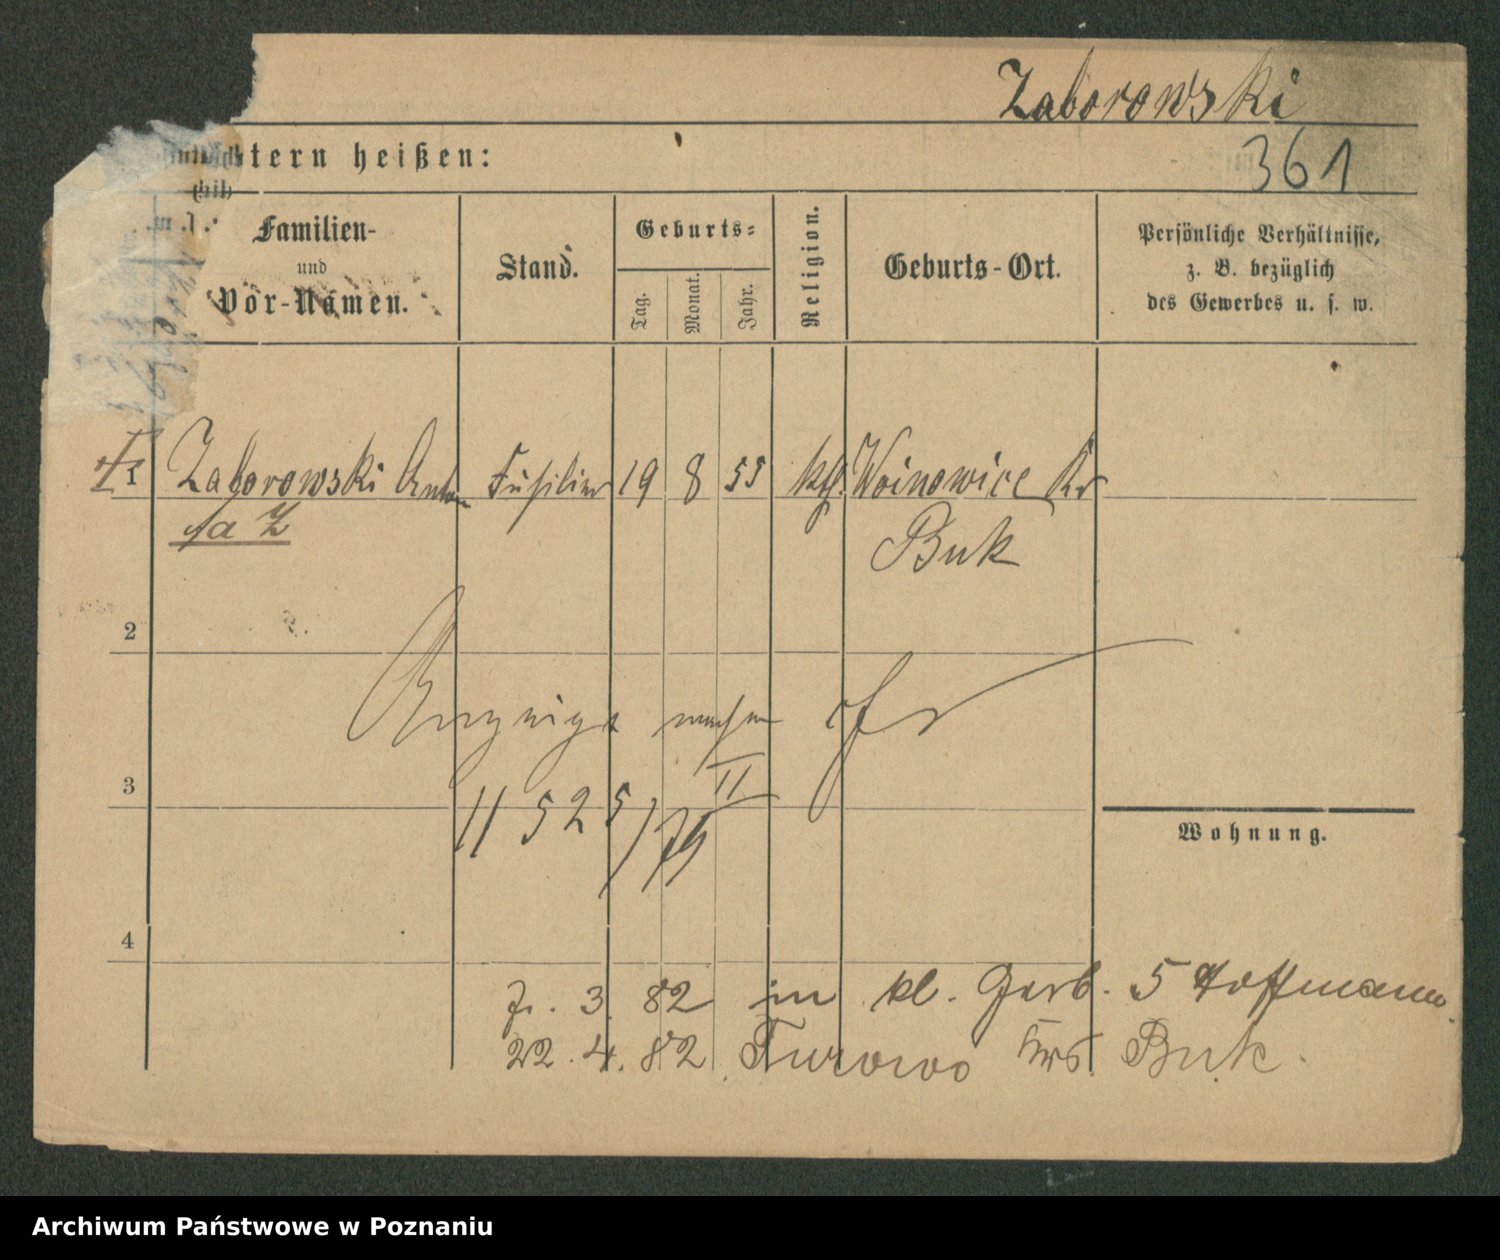 Zaborowski
tern heißen:
361
Familien-
und
Vor-Namen.
Stand.
Geburts-
Tag.
Monat.
Jahr.
Religion.
Geburts-Ort.
Persönliche Verhältnisse,
z. B. bezüglich
des Gewerbes u. s. w.
1 Zaborowski Anton Füsilier 19 8 55 kth. Woinowice Kr
Buk
2
3
II
11 525/79
Wohnung.
4
7. 3. 82 in kl. Gerb. 5 Hoffmann.
22. 4. 82 Turowo Krs. Buk.
Archiwum Państwowe w Poznaniu